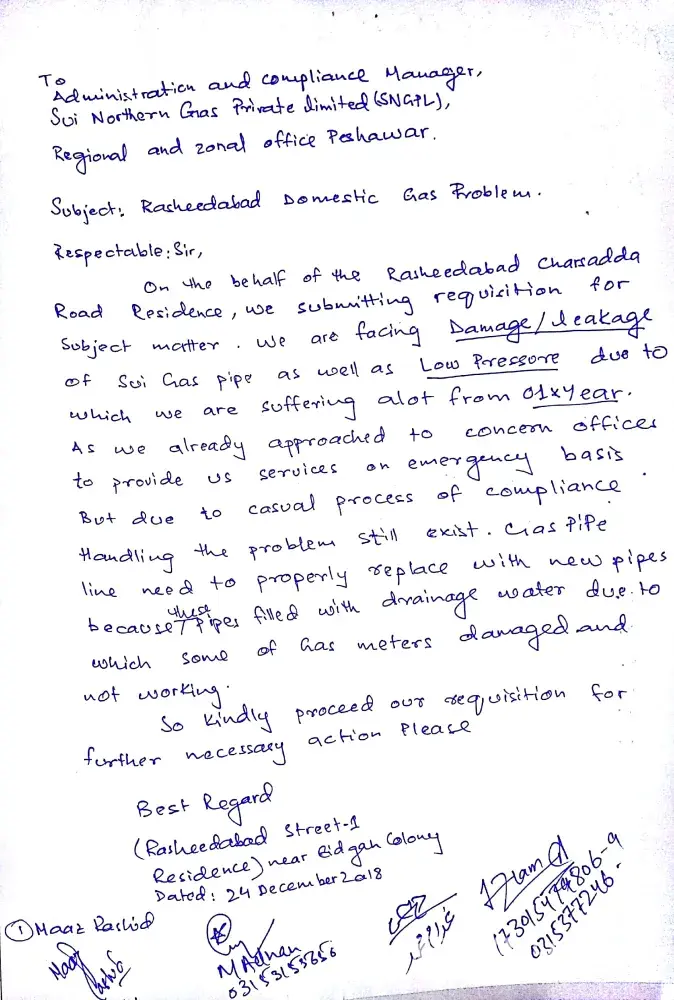 To
Administration and compliance Manager,
Sui Northern Gas Private Limited (SNGPL),
Regional and zonal office Peshawar.
Subject: Rasheedabad Domestic Gas Problem.
Respectable: Sir,
On the behalf of the Rasheedabad Charsadda
Road Residence, we submitting requisition for
Subject matter. We are facing Damage/leakage
of Sui Gas pipe as well as Low Pressore due to
which we are suffering alot from 01xYear.
As we already approached to concern offices
to provide us services on emergency basis.
But due to casual process of compliance
Handling the problem still exist. Gas Pipe
line need to properly replace with new pipes
because these pipes filled with drainage water due to
which some of Gas meters damaged and
not working.
So kindly proceed our requisition for
further necessary action Please
Best Regard
(Rasheedabad Street-1
Residence) near Eidgah Colony
Dated: 24 December 2018
① Maaz Rashid
Maaz
M Adnan
03153155656
173015474806-9
0315377246.